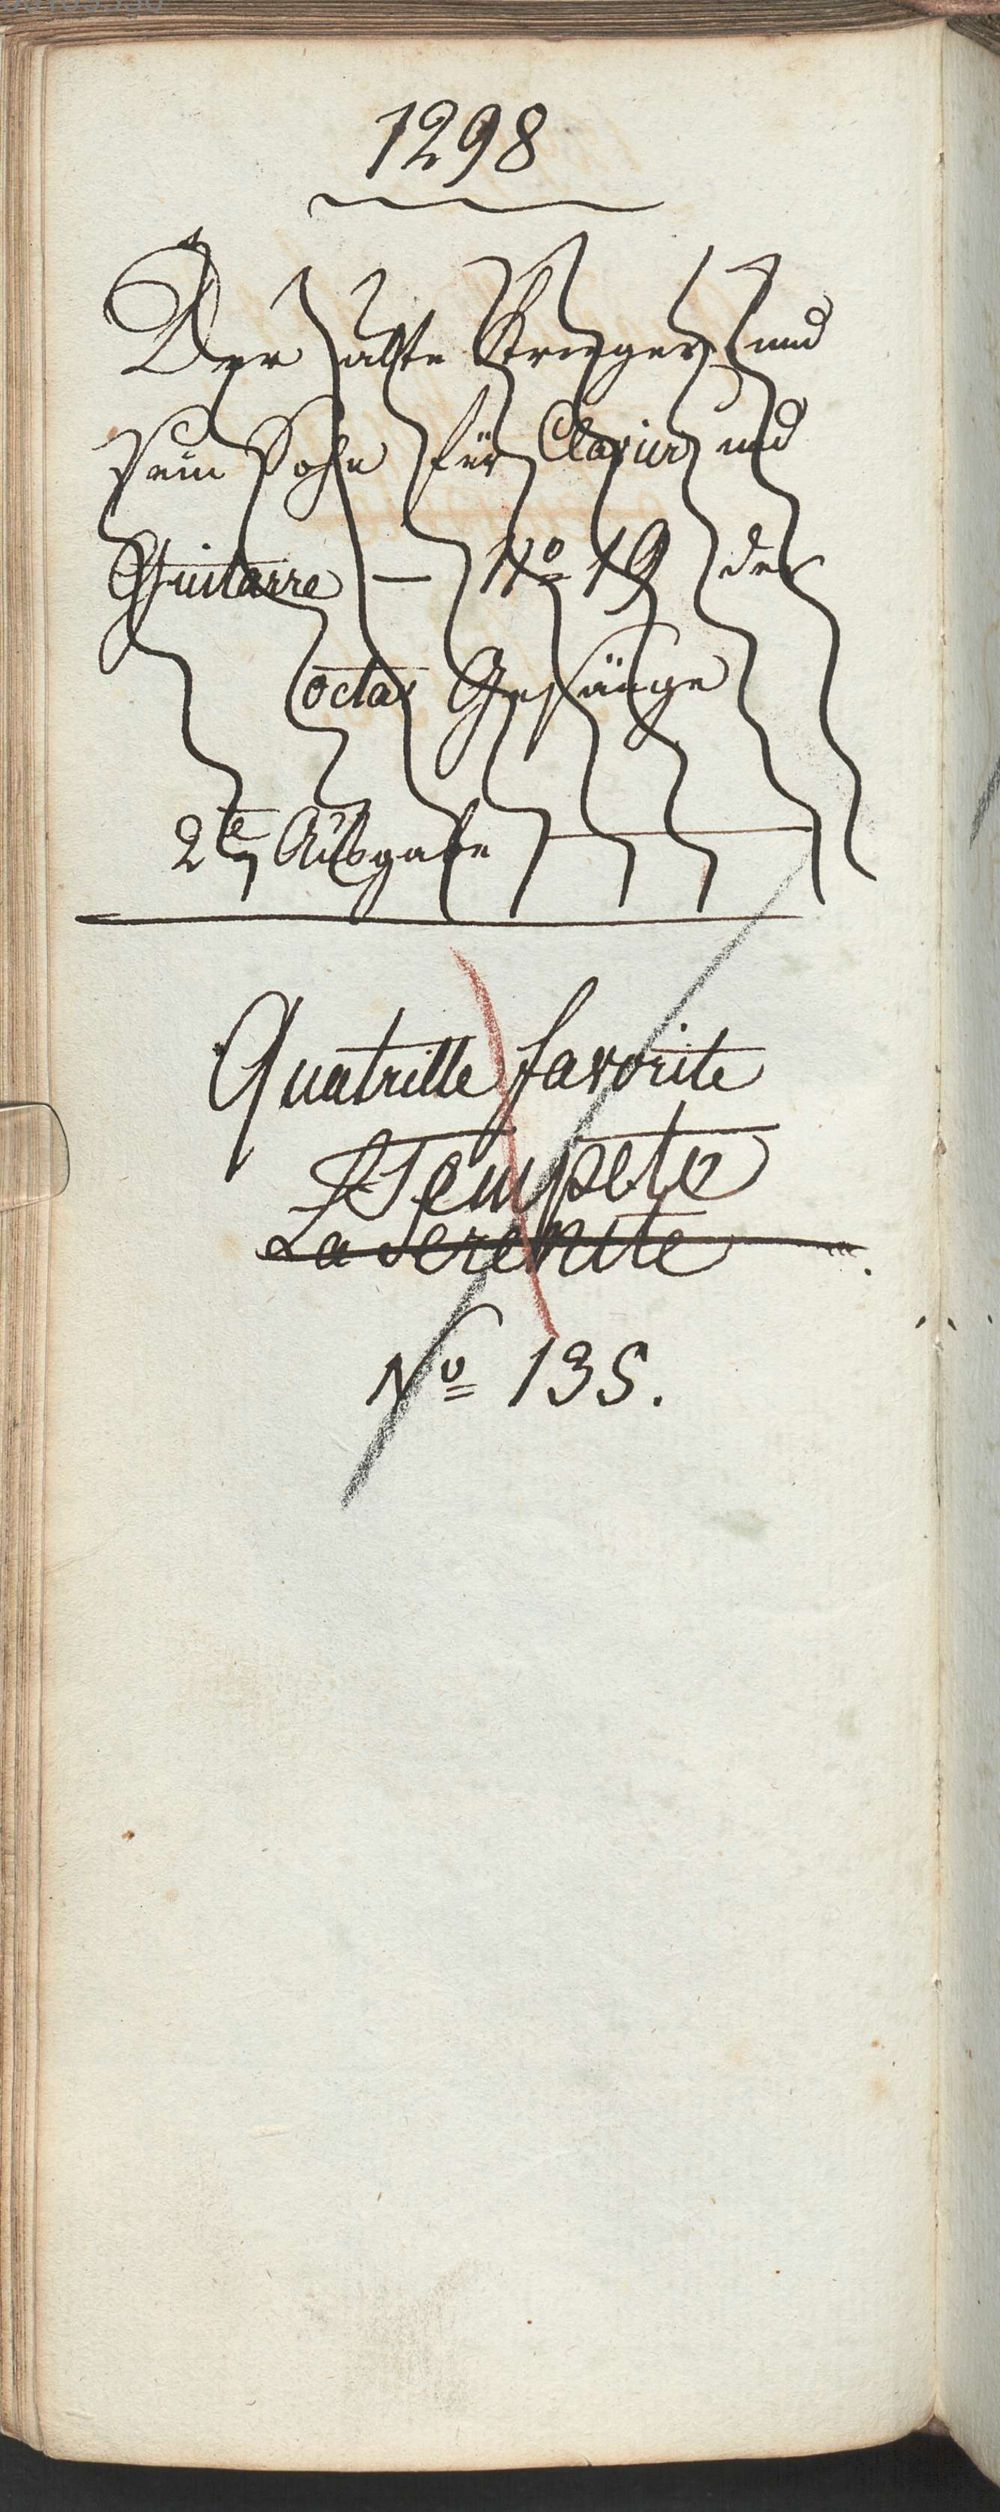 1298
Der alte Krieger und
sein Sohn für Clavier und
Guitarre — No 19 der
octav Gesänge
2te Ausgabe
Quatrille favorite
Tempete
La Serenite
No 135.